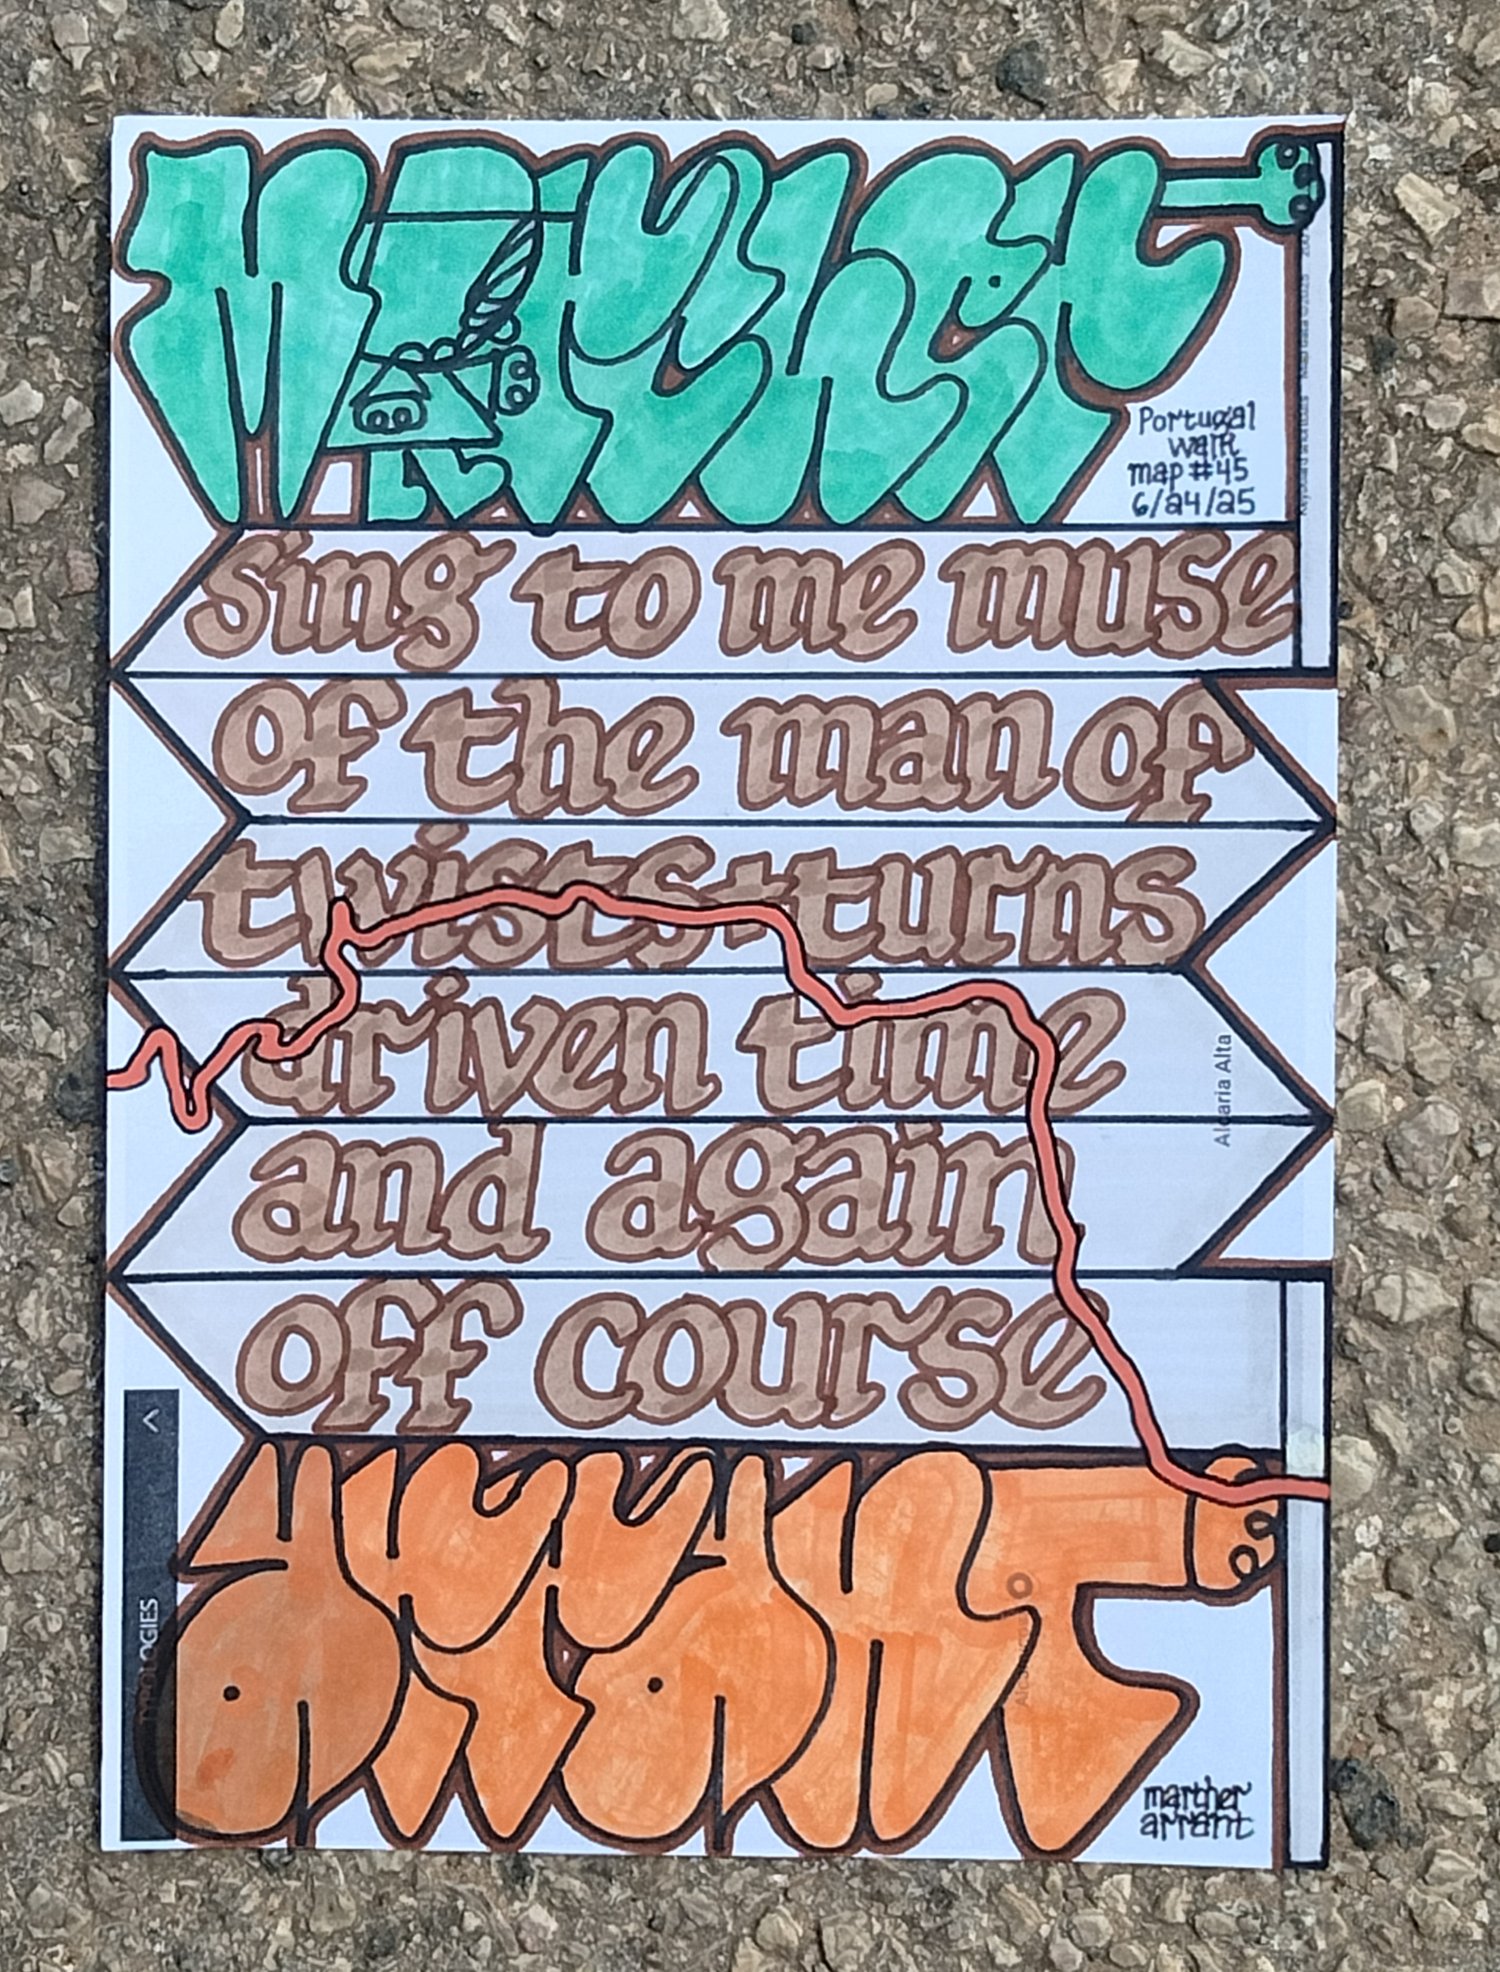 marther
Portugal
walk
map #45
6/24/25
sing to me muse
of the man of
twists + turns
driven time
and again
off course
Alcaria Alta
arrant
marther
arrant